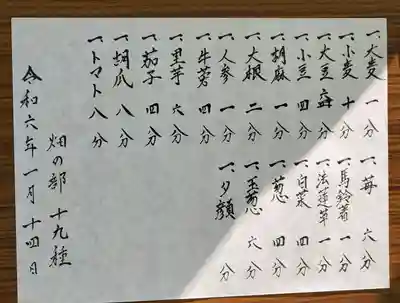 一、大麦 一分 一、苺 六分
一、小麦 十分 一、馬鈴薯 一分
一、大豆 分 一、法蓮草 一分
一、小豆 四分 一、白菜 四分
一、胡麻 一分 一、葱 四分
一、大根 二分 一、玉葱 六分
一、人参 一分 一、夕顔 分
一、牛蒡 四分
一、里芋 六分
一、茄子 四分
一、胡瓜 八分
一、トマト 八分
畑の部 十九種
令和六年一月十四日